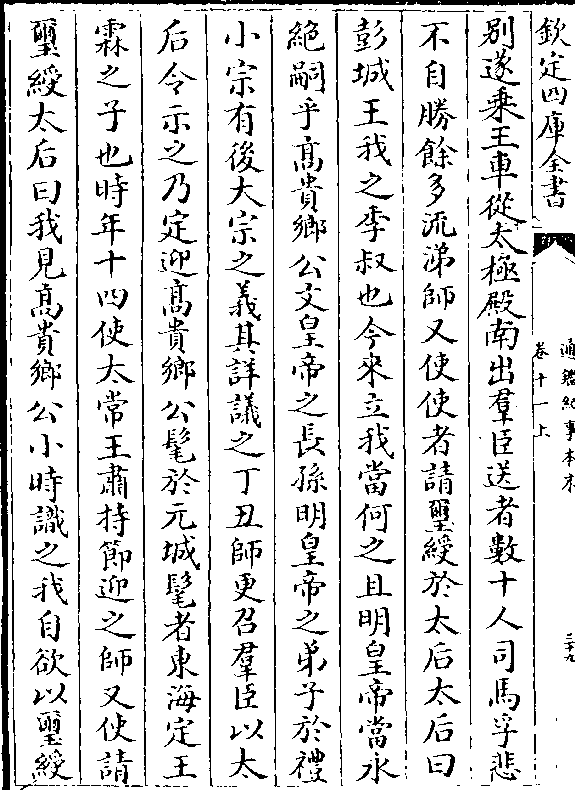 欽定四庫全書
通鑑紀事本末
卷十一上
三十九
别遂乘王車從太極殿南出羣臣送者數十人司馬孚悲
不自勝餘多流涕師又使使者請璽綬於太后太后曰
彭城王我之季叔也今來立我當何之且明皇帝當永
絶嗣乎髙貴鄉公文皇帝之長孫明皇帝之弟子於禮
小宗有後大宗之義其詳議之丁丑師更召羣臣以太
后令示之乃定迎髙貴鄉公髦於元城髦者東海定王
霖之子也時年十四使太常王肅持節迎之師又使請
璽綬太后曰我見髙貴鄉公小時識之我自欲以璽綬